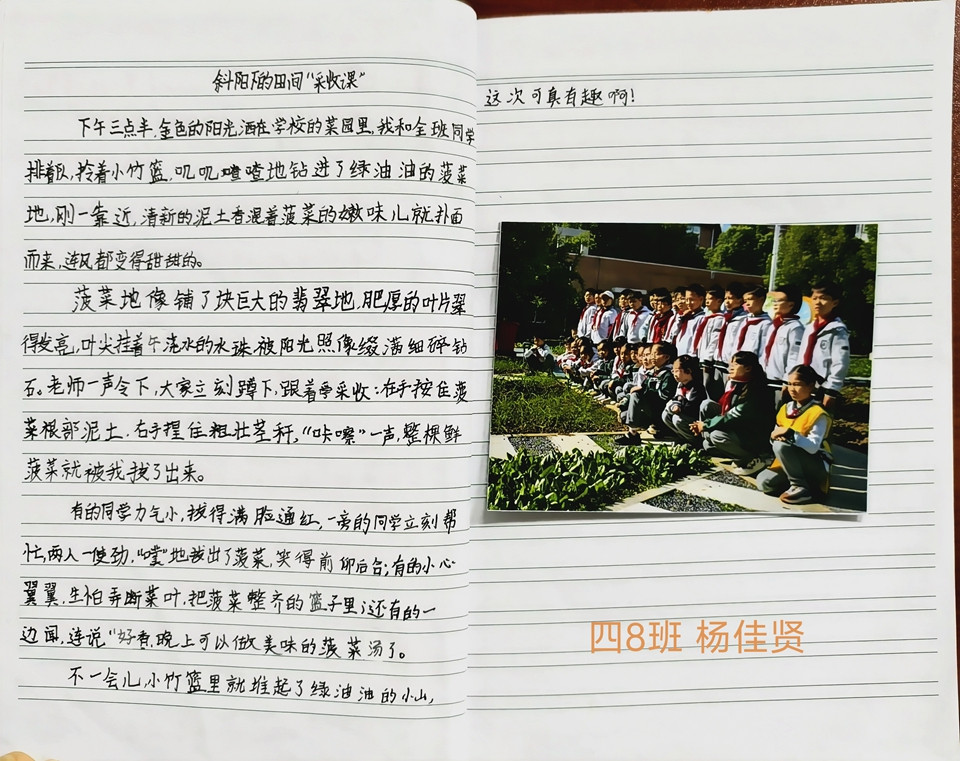 斜阳下的田间“采收课”
下午三点半,金色的阳光洒在学校的菜园里,我和全班同学
排着队,拎着小竹篮,叽叽喳喳地钻进了绿油油的菠菜
地,刚一靠近,清新的泥土香混着菠菜的嫩味儿就扑面
而来,连风都变得甜甜的。
菠菜地像铺了块巨大的翡翠地,肥厚的叶片翠
得发亮,叶尖挂着午浇水的水珠,被阳光照像缀满细碎钻
石。老师一声令下,大家立刻蹲下,跟着学采收:左手按住菠
菜根部泥土,右手捏住粗壮茎秆,“咔嚓”一声,整棵鲜
菠菜就被我拔了出来。
有的同学力气小,拔得满脸通红,一旁的同学立刻帮
忙,两人一使劲,“噔”地拔出了菠菜,笑得前仰后合;有的小心
翼翼,生怕弄断菜叶,把菠菜整齐的篮子里;还有的一
边闻,连说“好香,晚上可以做美味的菠菜汤了。
不一会儿,小竹篮里就堆起了绿油油的小山,
这次可真有趣啊!
四8班 杨佳贤